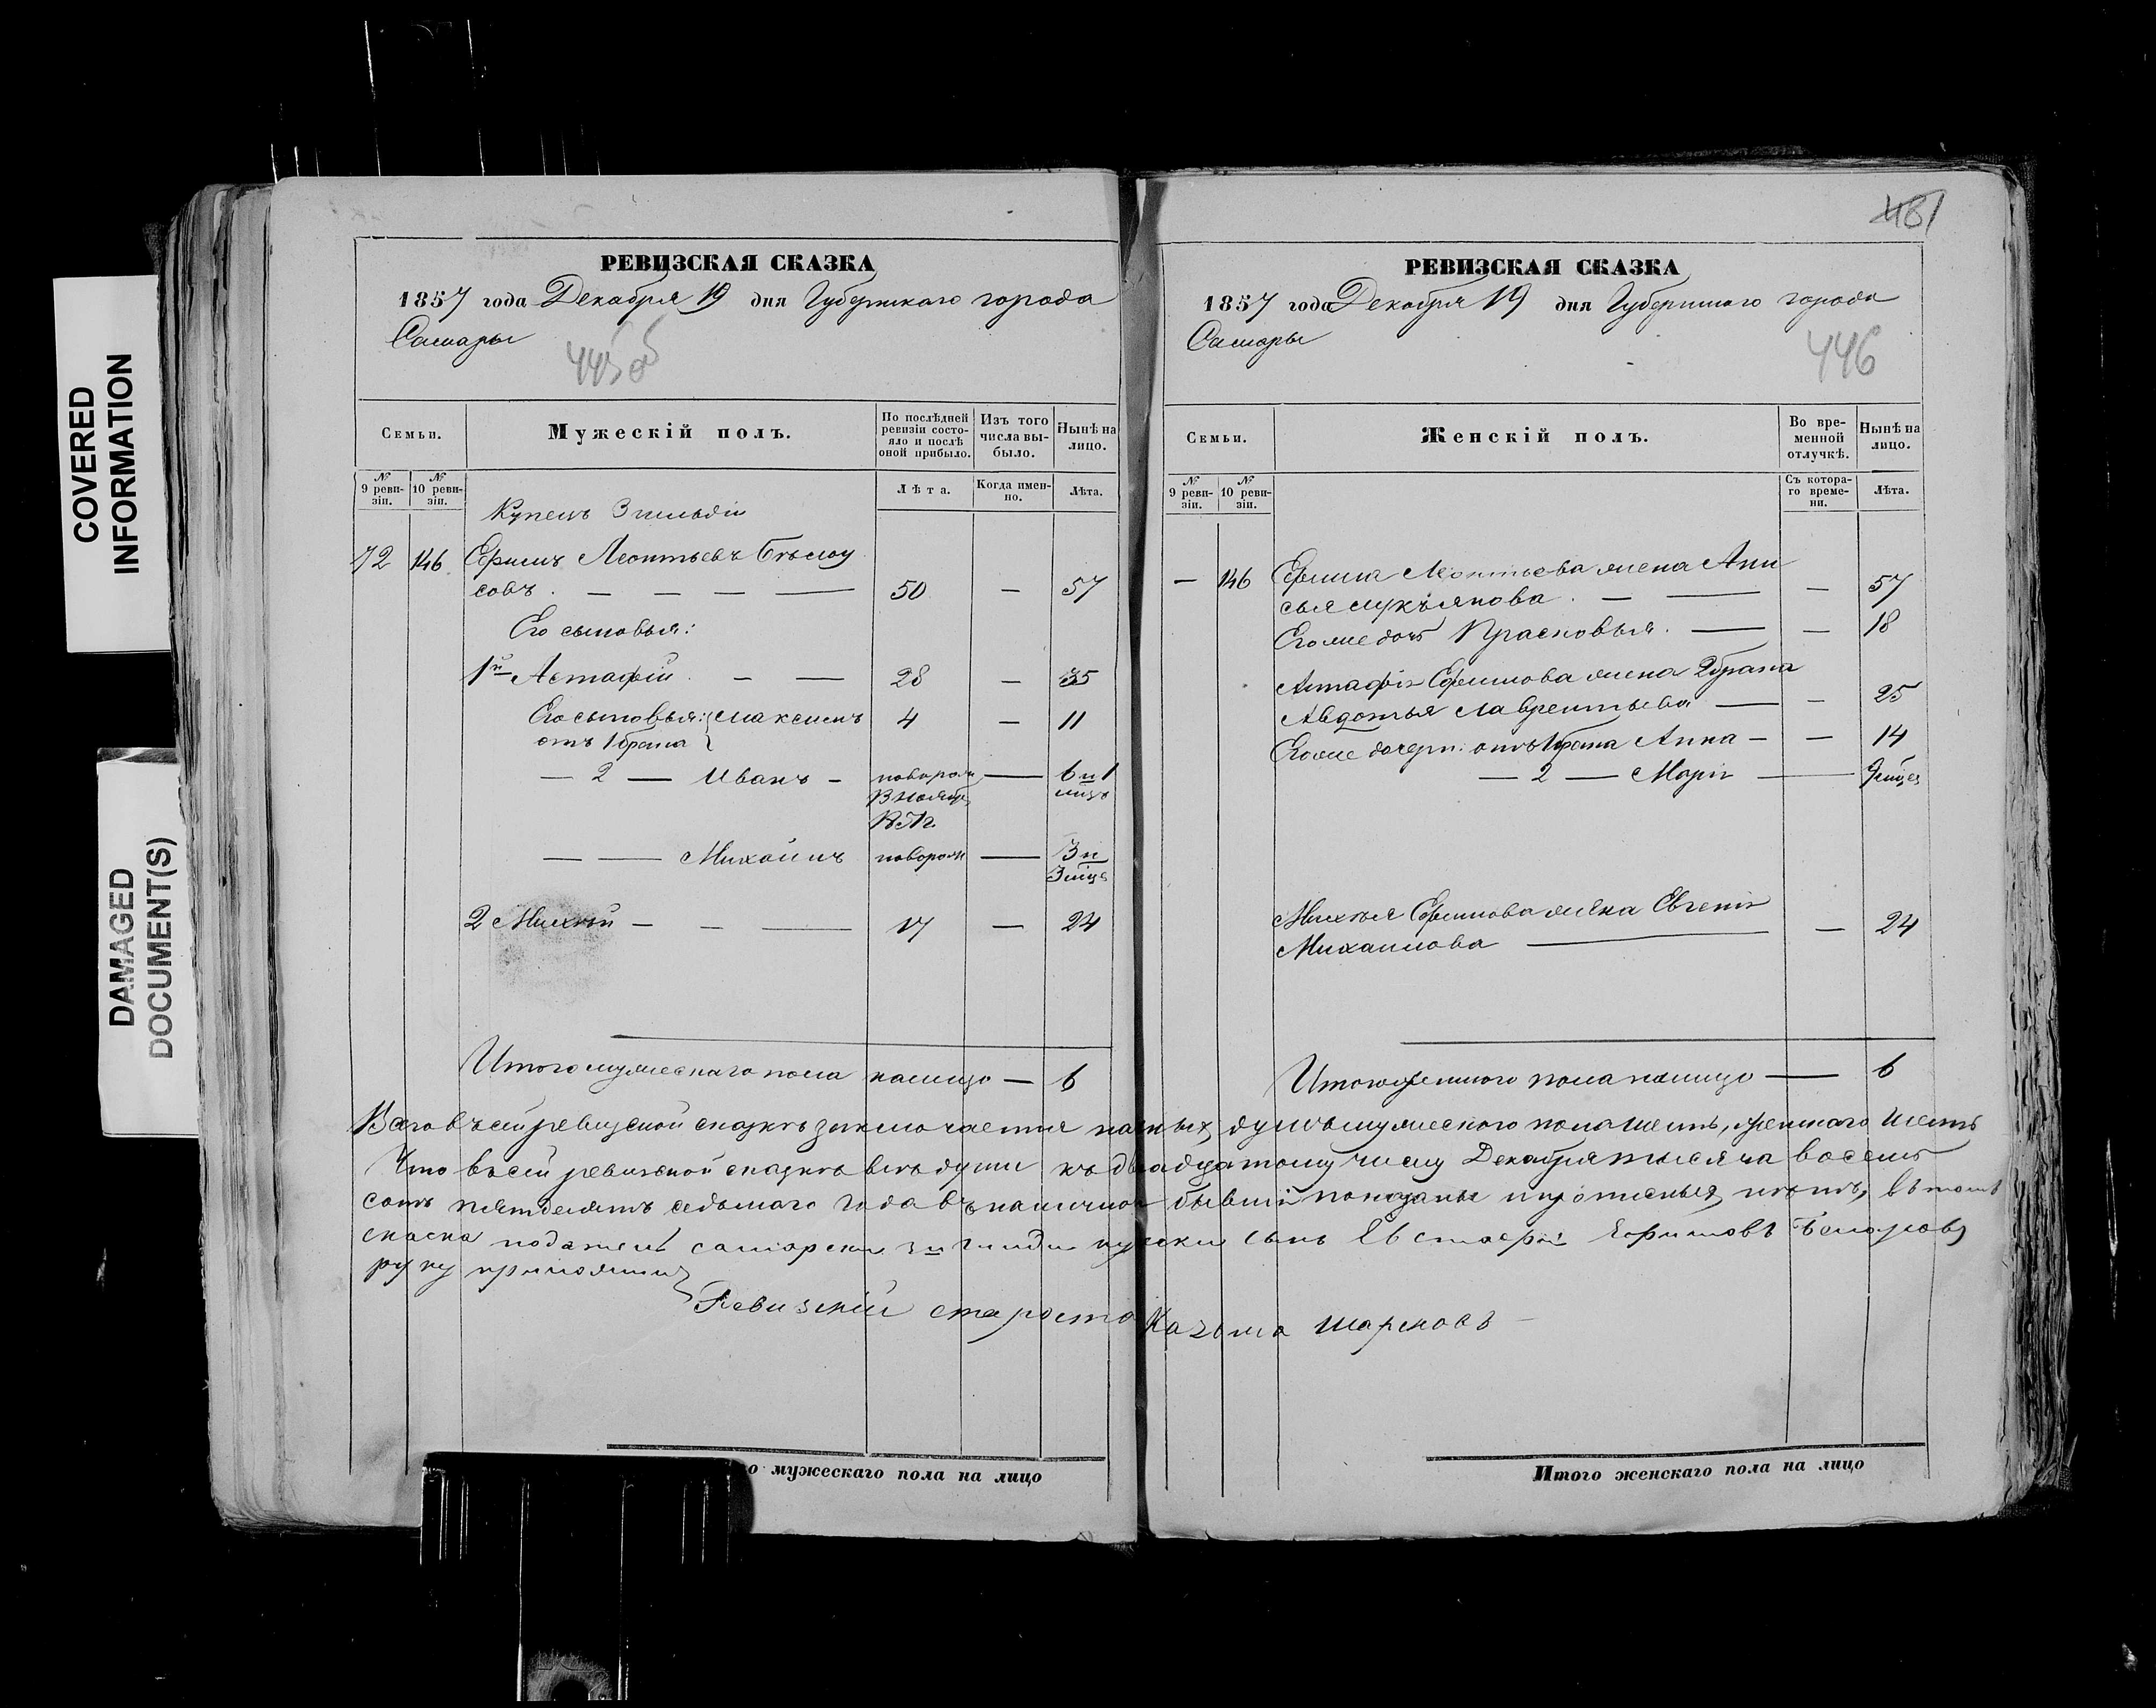 COVERED
INFORMATION
DAMAGED
DOCUMENT(S)
РЕВИЗСКАЯ СКАЗКА
1857 года Декабря 19 дня Губернскаго города
Самары
445 об
Семьи.
Мужескій полъ.
По послѣдней
ревизіи состо-
яло и послѣ
оной прибыло.
Изъ того
числа вы-
было.
Нынѣ на
лицо.
№
9 реви-
зіи.
№
10 реви-
зіи.
Лѣта.
Когда имен-
но.
Лѣта.
Купецъ 3 гильдіи
72 146 Ефимъ Леонтьевъ Бѣлоу
совъ. — — — — 50 — 57
Его сыновья:
1й Астафій — — 28 — 35
Его сыновья: Максимъ 4 — 11
отъ 1 брака
— 2 — Иванъ — новорож — 6 и 1
мѣц
— — Михаилъ новорож — 3 и
3 мѣц
2 Михѣй — — — 17 — 24
Итого мужескаго пола налицо — 6
481
РЕВИЗСКАЯ СКАЗКА
1857 года Декабря 19 дня Губернскаго города
Самары
446
Семьи.
Женскій полъ.
Во вре-
менной
отлучкѣ.
Нынѣ на
лицо.
№
9 реви-
зіи.
№
10 реви-
зіи.
Съ котора-
го време-
ни.
Лѣта.
— 146 Ефима Леонтьева жена Ани
сья Лукъянова. — — — 57
Его же дочь Прасковья. — — 18
Астафія Ефимова жена 2 брака
Авдотья Лаврентьева — — 25
Его же дочери: отъ 1 брака Анна — — 14
— 2 — Марія — 9 мѣцев
Михѣя Ефимова жена Евгенія
Михаилова — — 24
Итого женскаго пола налицо — 6
Всего въ сей ревизской сказкѣ заключается наличныхъ душъ мужескаго пола шесть, женскаго шесть
Что въ сей ревизской сказкѣ всѣ души къ двадцатому числу Декабря тысяча восемь
сотъ пятьдесятъ седьмаго года въ наличной бывшіи показаны и прописныхъ нѣтъ, въ томъ
скаска податель самарски 3й гилди купески сынъ Евстафи Ефимовъ Белоусовъ
руку приложилъ
Ревизкіи староста Казьма Шарековъ
о мужескаго пола на лицо
Итого женскаго пола на лицо